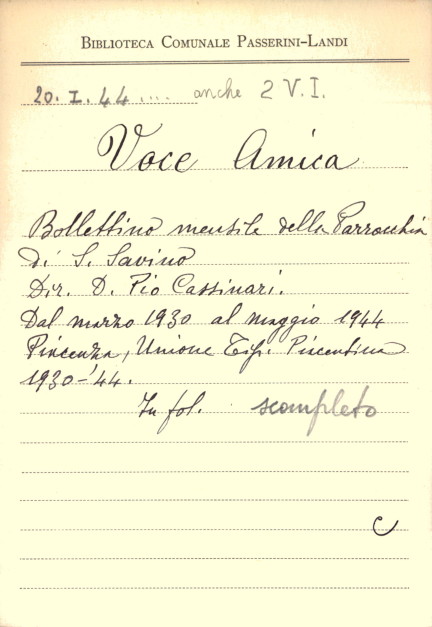 BIBLIOTECA COMUNALE PASSERINI-LANDI
20. I. 44 .... anche 2 V.I.
Voce Amica
Bollettino mensile della Parrocchia
di S. Savino
Dir. D. Pio Cassinari.
Dal marzo 1930 al maggio 1944
Piacenza, Unione Tip. Piacentina
1930-'44.
In fol. scompleto
C